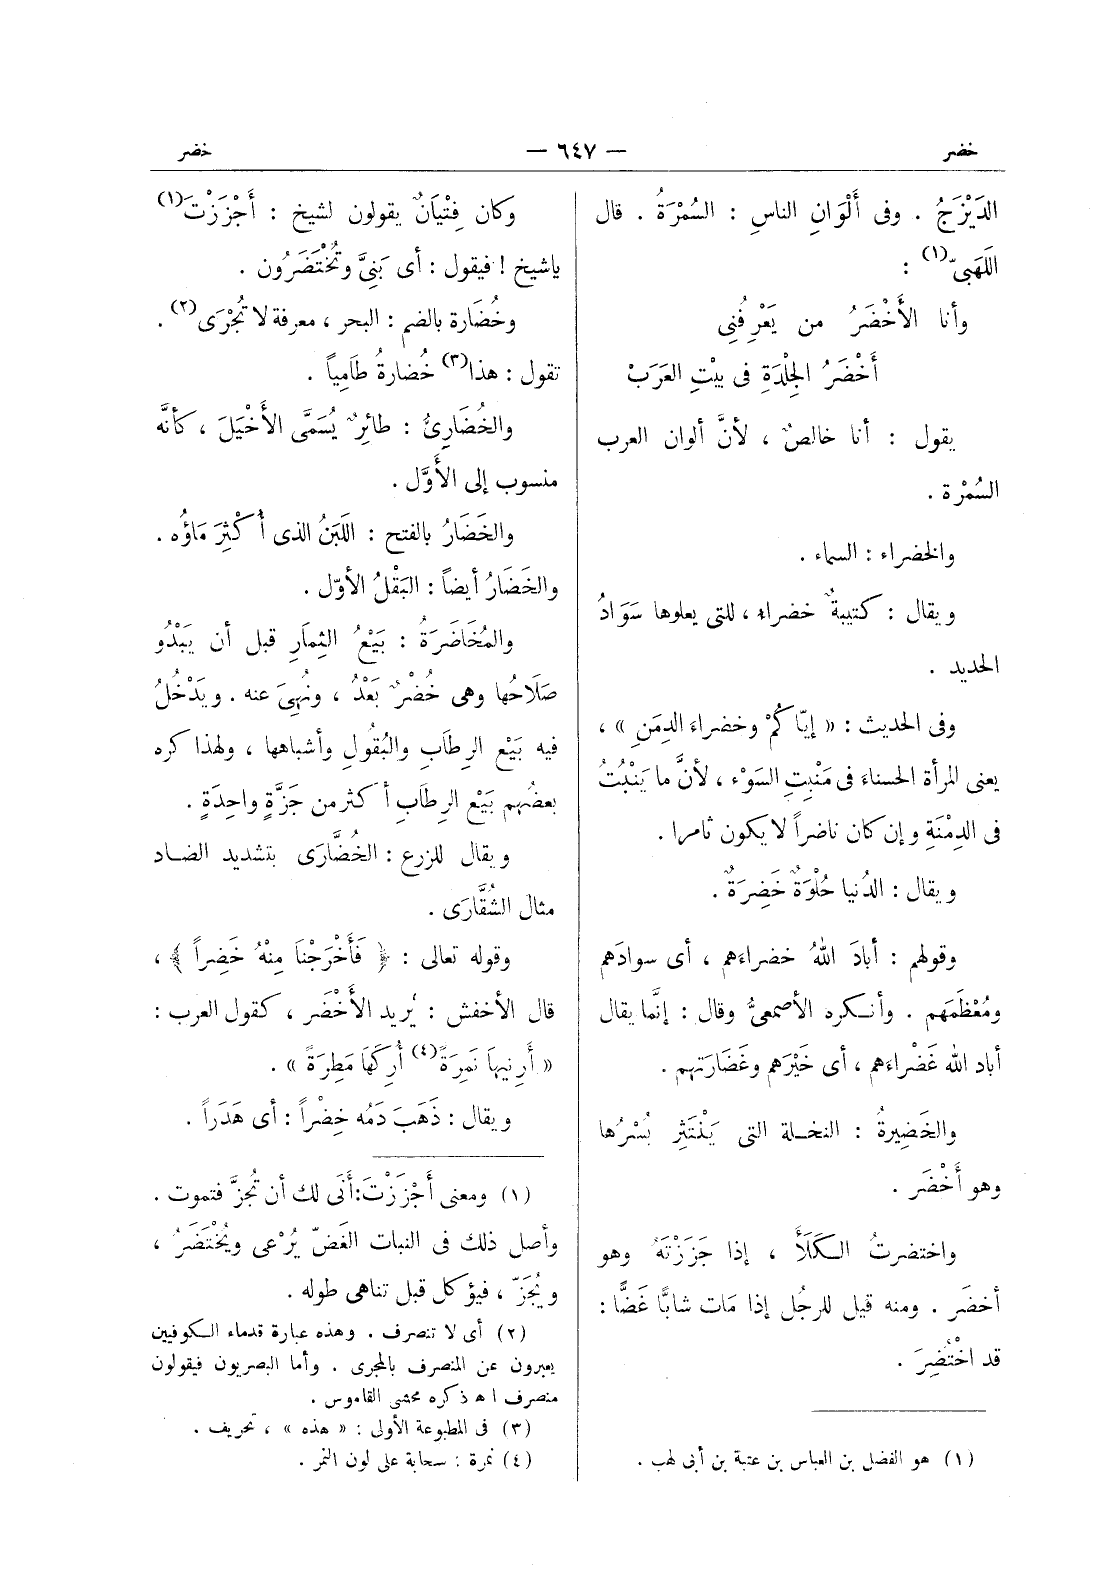 خضر — ٦٤٧ — خضر
الدَيْزَجُ . وفى أَلْوَانِ الناسِ : السُمْرَةُ . قال
اللَهَبىّ(١) :
وأنا الأَخْضَرُ من يَعْرِفُنِى
أَخْضَرُ الجِلْدَةِ فى بيْتِ العَرَبْ
يقول : أنا خالصٌ ، لأنَّ ألوان العرب
السُمْرة .
والخضراء : السماء .
ويقال : كتيبةٌ خضراء ، للتى يعلوها سَوَادُ
الحديد .
وفى الحديث : « إيّاكُمْ وخضراءَ الدِمَنِ » ،
يعنى المرأة الحسناء فى مَنْبِتِ السَوْء ، لأنَّ ما يَنْبُتُ
فى الدِمْنَةِ وإن كان ناضراً لا يكون ثامرا .
ويقال : الدُنيا حُلْوَةٌ خَضِرَةٌ .
وقولهم : أبادَ اللهُ خضراءهم ، أى سوادَهم
ومُعْظَمَهم . وأنكره الأصمعىُّ وقال : إنَّما يقال
أباد الله غَضْراءهم ، أى خَيْرَهم وغَضَارَتهم .
والخَضِيرةُ : النخلة التى يَنْتَثِر بُسْرُها
وهو أَخْضَر .
واختضرتُ الكَلَأَ ، إذا جَزَزْتَهُ وهو
أخضَر . ومنه قيل للرجُل إذا مَات شابًّا غَضًّا :
قد اخْتُضِرَ .
(١) هو الفضل بن العباس بن عتبة بن أبى لهب .
وكان فِتْيَانٌ يقولون لشيخ : أَجْزَزْتَ(١)
ياشيخ ! فيقول : أى بَنِىَّ وتُخْتَضَرُون .
وخُضَارة بالضم : البحر ، معرفة لا تُجْرَى(٢) .
تقول : هذا(٣) خُضارةُ طَامِياً .
والخُضَارِىُّ : طائرٌ يُسَمَّى الأَخْيَلَ ، كأنَّه
منسوب إلى الأَوَّل .
والخَضَارُ بالفتح : اللَبَنُ الذى أُكْثِرَ مَاؤُه .
والخَضَارُ أيضاً : البَقْلُ الأوّل .
والمُخَاضَرَةُ : بَيْعُ الثِمَارِ قبل أن يَبْدُو
صَلَاحُها وهى خُضْرٌ بَعْدُ ، ونُهِىَ عنه . ويَدْخُلُ
فيه بَيْع الرِطَابِ والبُقُولِ وأشباهها ، ولهذا كره
بعضُهم بَيْع الرِطَابِ أكثر من جَزَّةٍ واحِدَةٍ .
ويقال للزرع : الخُضَّارَى بتشديد الضاد
مثال الشُقَّارَى .
وقوله تعالى : ﴿ فَأَخْرَجْنَا مِنْهُ خَضِراً ﴾ ،
قال الأخفش : يُريد الأَخْضَر ، كقول العرب :
« أَرِنِيهَا نَمِرَةً(٤) أُرِكَهَا مَطِرَةً » .
ويقال : ذَهَبَ دَمُه خِضْراً : أى هَدَراً .
(١) ومعنى أَجْزَزْتَ: أَنَى لك أن تُجَزَّ فتموت .
وأصل ذلك فى النبات الغَضّ يُرْعى ويُخْتَضَرُ ،
ويُجَزّ ، فيؤكل قبل تناهى طوله .
(٢) أى لا تنصرف . وهذه عبارة قدماء الكوفيين
يعبرون عن المنصرف بالمجرى . وأما البصريون فيقولون
منصرف اه ذكره محشى القاموس .
(٣) فى المطبوعة الأولى : « هذه » ، تحريف .
(٤) نمرة : سحابة على لون النمر .